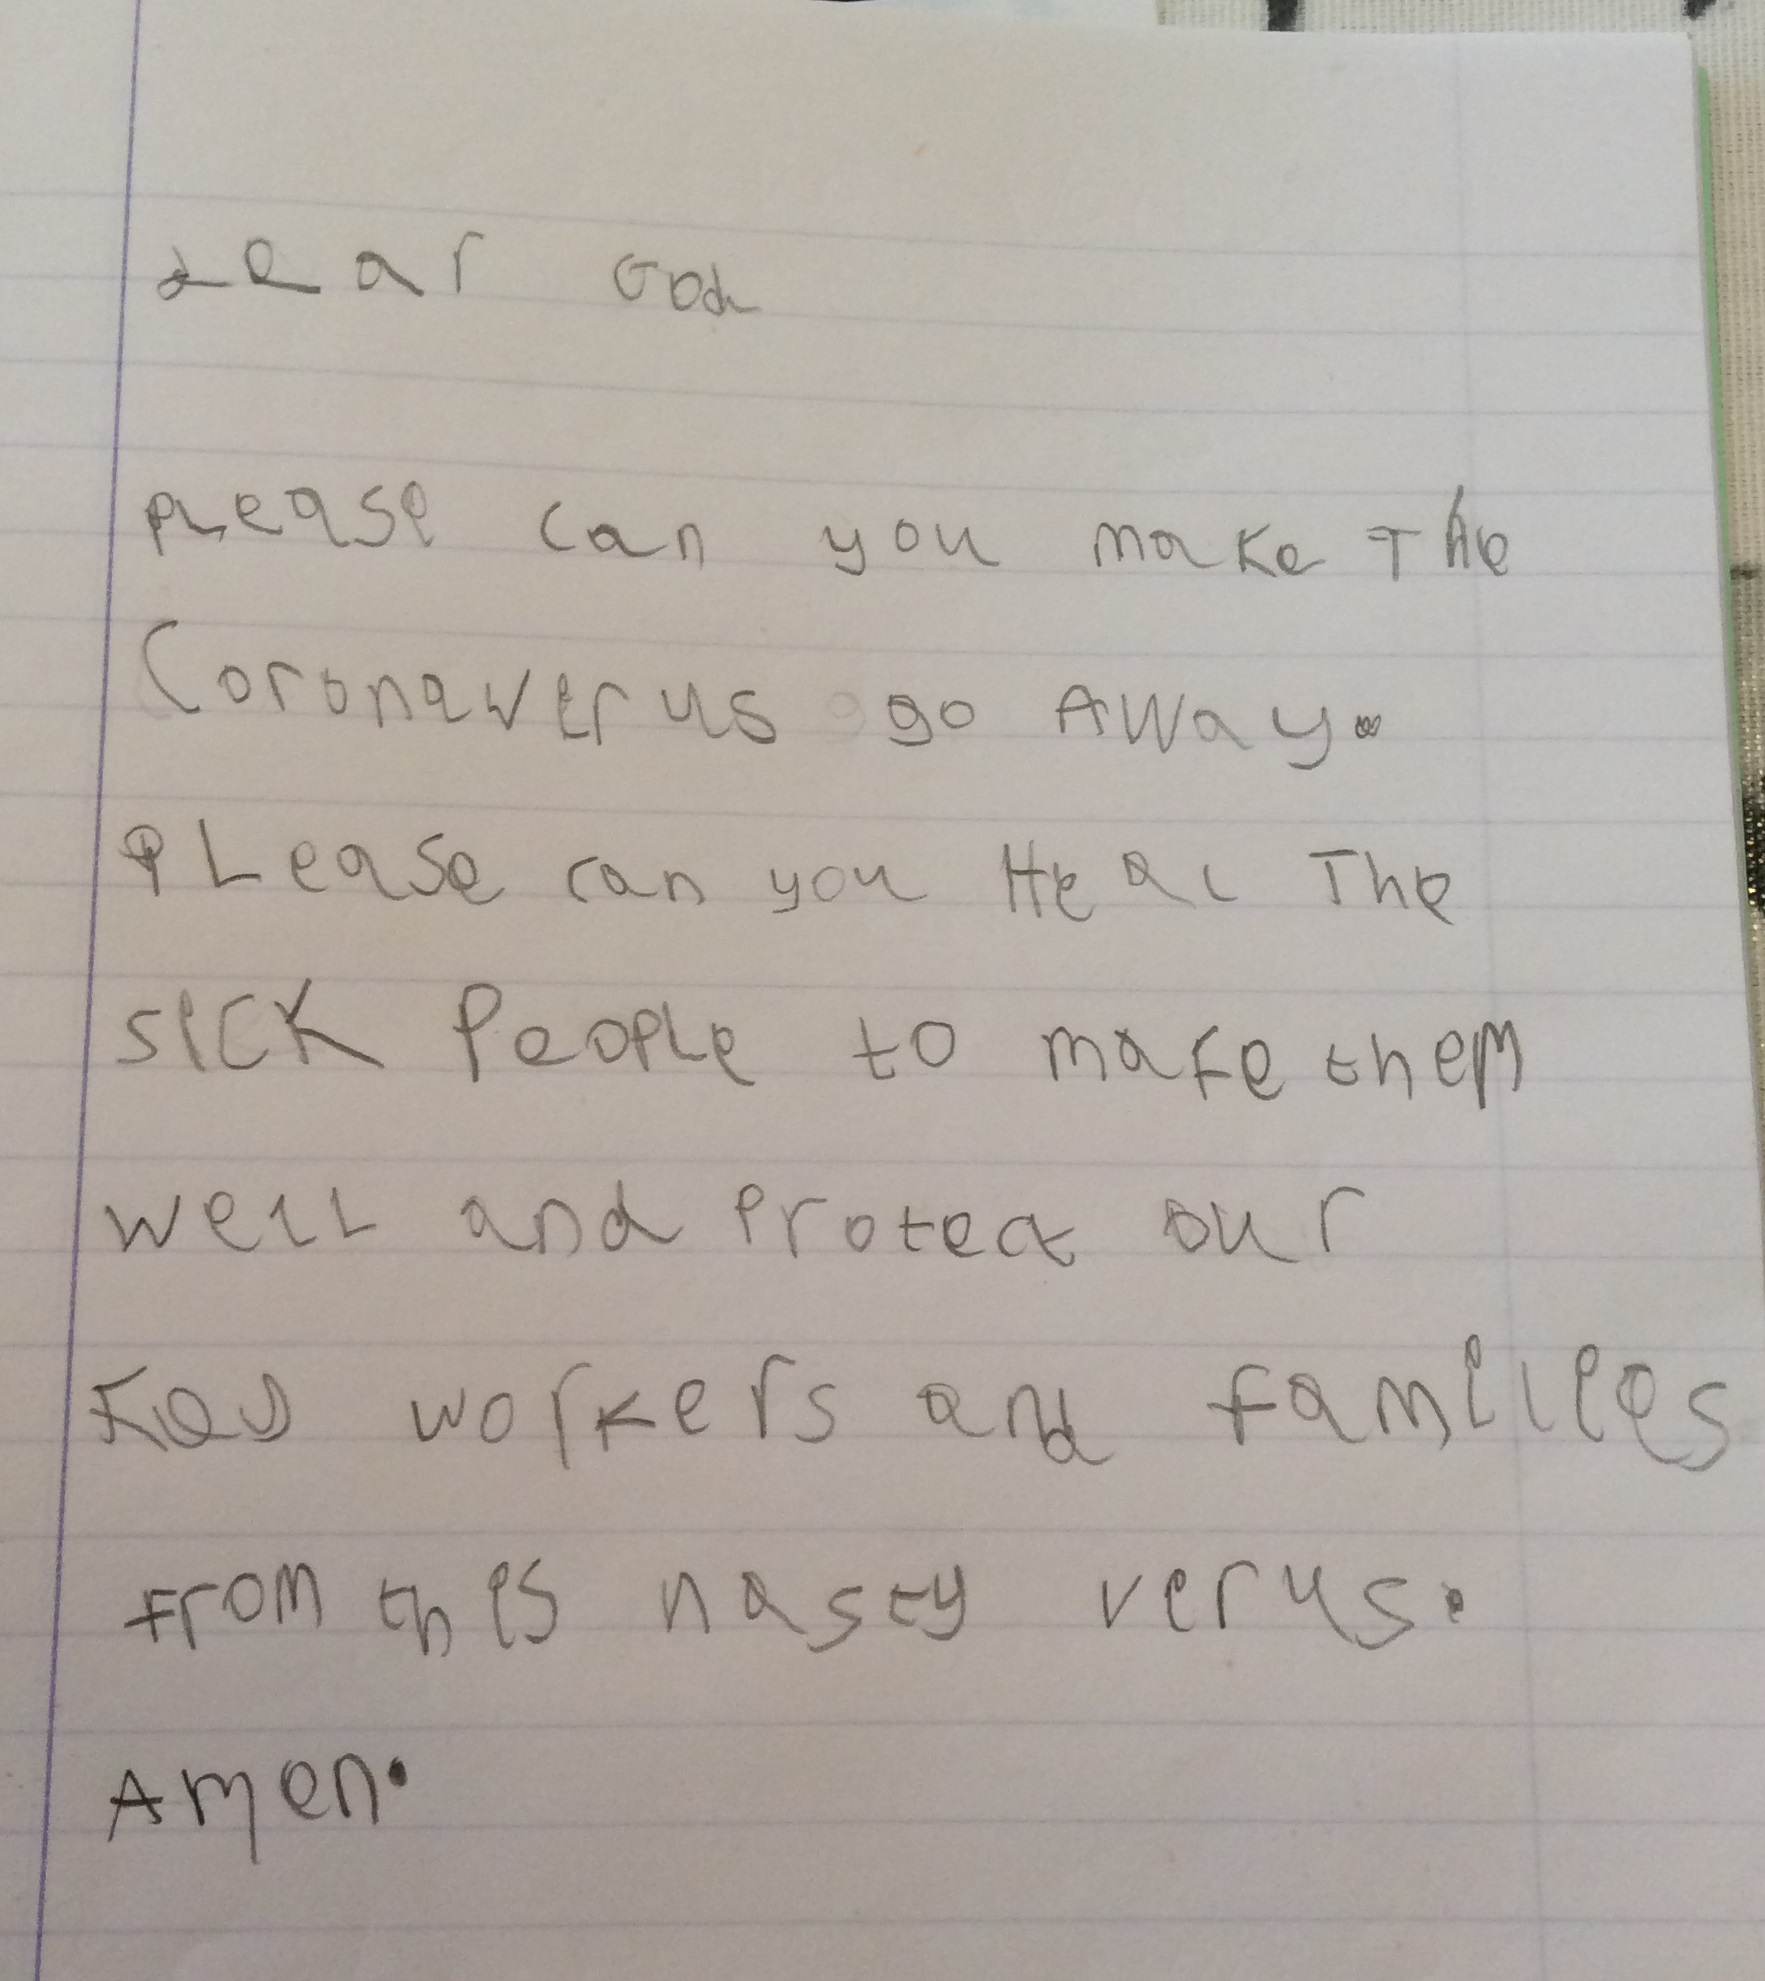 dear God
please can you make The
Coronaverus go AWay.
PLease can you Heal The
sick PeoPLe to make them
well and Protect our
Key workers and families
From thes nasty verus.
Amen.